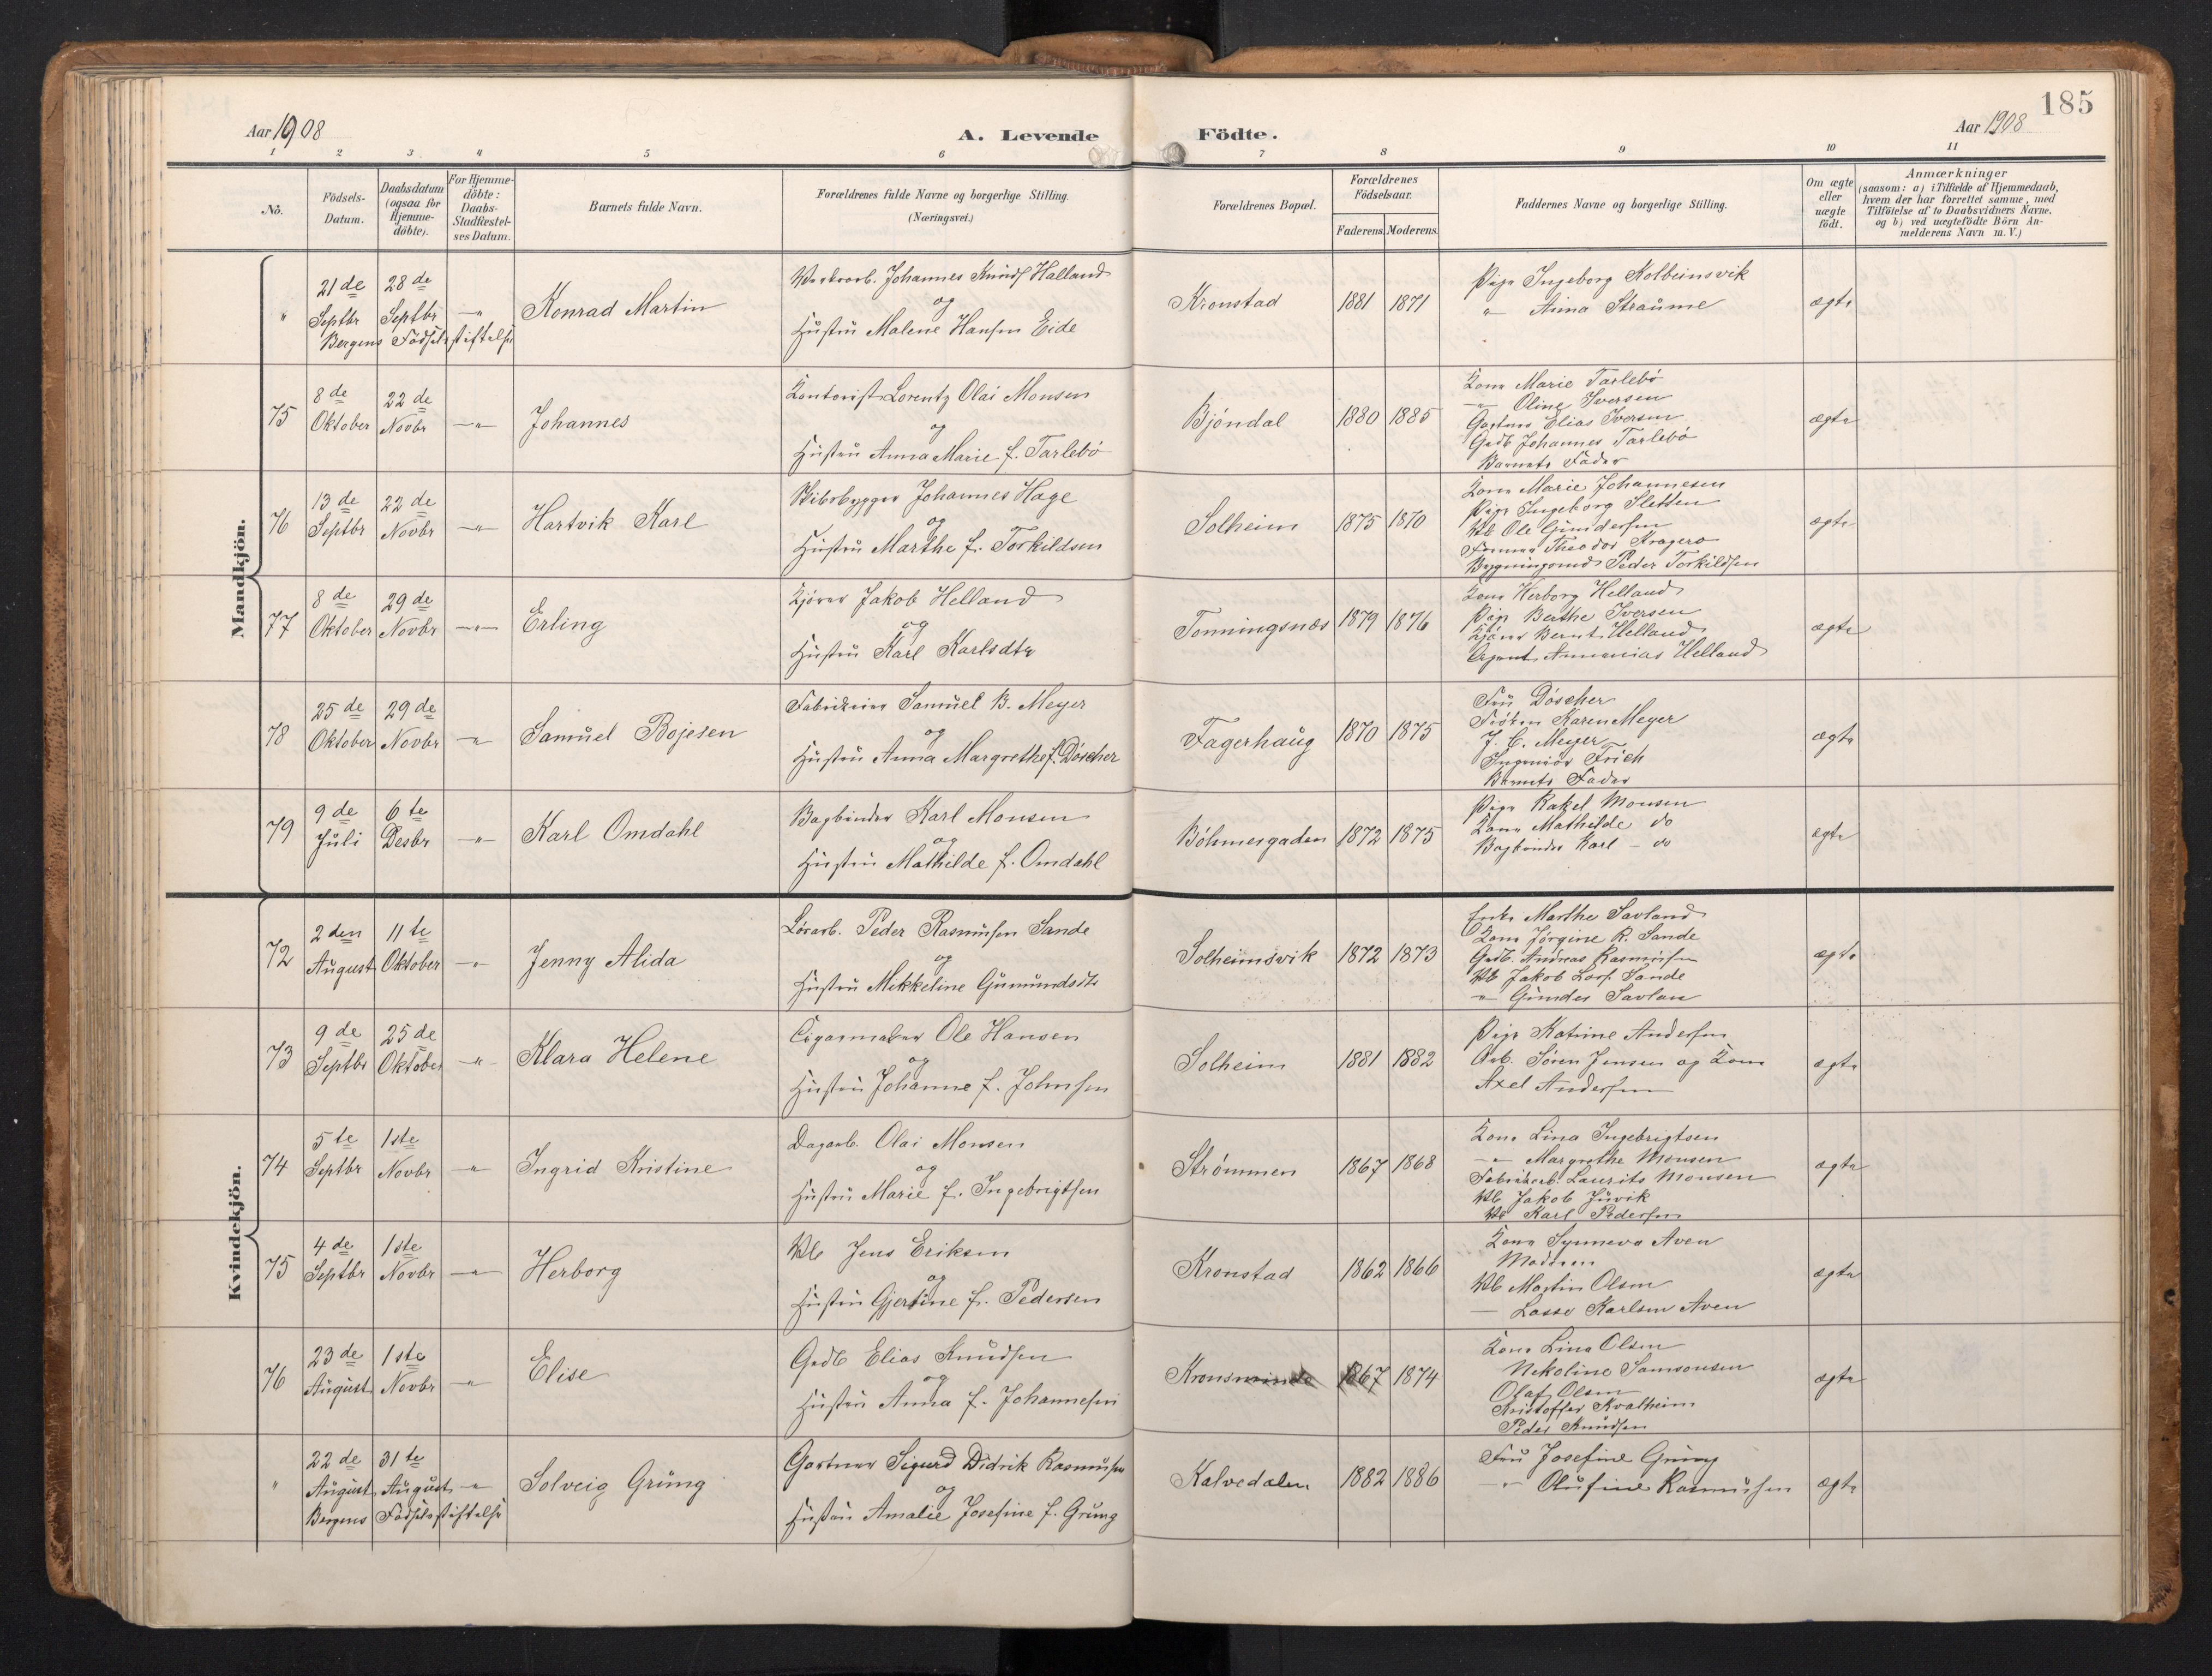 185
Aar 1908
A. Levende Födte.
Aar 1908
1 2 3 4 5 6 7 8 9 10 11
No.
Födsels-Datum.
Daabsdatum (ogsaa for Hjemme-döbte).
For Hjemme-döbte: Daabs-Stadfæstel-ses Datum.
Barnets fulde Navn.
Forældrenes fulde Navne og borgerlige Stilling.
(Næringsvei.)
Forældrenes Bopæl.
Forældrenes Födselsaar.
Faderens. Moderens.
Faddernes Navne og borgerlige Stilling.
Om ægte eller uægte födt.
Anmærkninger
(saasom: a) i Tilfælde af Hjemmedaab,
hvem der har forrettet samme, med
Tilföielse af to Daabsvidners Navne.
og b) ved uægtefödte Börn An-
melderens Navn m. V.)
Mandkjön.
" 21de Septbr 28de Septbr —"— Konrad Martin
Bergens Fødselsstiftelse
Johannes Knuds Halland
og
Hustru Malene Hansen Eide
Kronstad 1881 1871
Pige Ingeborg Kolbeinsvik
" Anna Straume
ægte
75 8de Oktober 22de Novbr —"— Johannes
Kontorist Lorentz Olai Monsen
og
Hustru Anna Marie f. Tarlebø
Bjøndal 1880 1885
Kone Marie Tarlebø
—"— Oline Iversen
Gartner Elias Iversen
Gadb. Johannes Tarlebø
Barnets Fader
ægte
76 13de Septbr 22de Novbr —"— Hartvik Karl
Skibsbygger Johannes Hage
og
Hustru Marthe f. Torkildsen
Solheim 1875 1870
Kone Marie Johannesen
Pige Ingeborg Sletten
Ab Ole Gundersen
Former Theodor Kragerø
Bygningsmd Peder Torkildsen
ægte
77 8de Oktober 29de Novbr —"— Erling
Kjører Jakob Helland
og
Hustru Kari Karlsdtr
Tonningsnæs 1879 1876
Kone Herborg Helland
Pige Berthe Iversen
Kjører Bernt Helland
Agent Annanias Helland
ægte
78 25de Oktober 29de Novbr —"— Samuel Bojesen
Fabrikeier Samuel B. Meyer
og
Hustru Anna Margrethe f. Døscher
Fagerhaug 1870 1875
Fru Døscher
Frøken Karen Meyer
J. C. Meyer
Ingeniør Frich
Barnets Fader
ægte
79 9de Juli 6te Desbr —"— Karl Omdahl
Bogbinder Karl Monsen
og
Hustru Mathilde f. Omdahl
Bøhmergaden 1872 1875
Pige Rakel Monsen
Kone Mathilde do
Bogbinder Karl — do
ægte
Kvindekjön.
72 2den August 11te Oktober —"— Jenny Alida
Peder Rasmusen Sande
og
Hustru Mikkeline Gumundsdtr
Solheimsvik 1872 1873
Enke Marthe Savland
Kone Jørgine R. Sande
Gadb. Andreas Rasmusen
Ab Jakob Lars. Sande
—"— Gunder Savlan
ægte
73 9de Septbr 25de Oktober —"— Klara Helene
Cigarmaker Ole Hansen
og
Hustru Johanne f. Johnsen
Solheim 1881 1882
Pige Katrine Andersen
Arb. Søren Jensen og Kone
Axel Andersen
ægte
74 5te Septbr 1ste Novbr —"— Ingrid Kristine
Dagarb. Olai Monsen
og
Hustru Marie f. Ingebrigtsen
Strømmen 1867 1868
Kone Lina Ingebrigtsen
—"— Margrethe Monsen
Fabrikarb. Laurits Monsen
Ab Jakob Juvik
Ab Karl Pedersen
ægte
75 4de Septbr 1ste Novbr —"— Herborg
Ab Jens Eriksen
og
Hustru Gjertine f. Pedersen
Kronstad 1862 1866
Kone Synneva Aven
Moderen
Ab Martin Olsen
— Lasse Karlsen Aven
ægte
76 23de August 1ste Novbr —"— Elise
Gadb Elias Knudsen
og
Hustru Anna f. Johannesen
Kronsminde 1867 1874
Kone Lina Olsen
Nekoline Samsonsen
Olaf Olsen
Kristoffer Kvalheim
Peder Knudsen
ægte
" 22de August 31te August —"— Solveig Grung
Bergens Fødselsstiftelse
Gartner Sigurd Didrik Rasmusen
og
Hustru Amalie Josefine f. Grung
Kalvedalen 1882 1886
Fru Josefine Grung
—"— Olufine Rasmussen
ægte